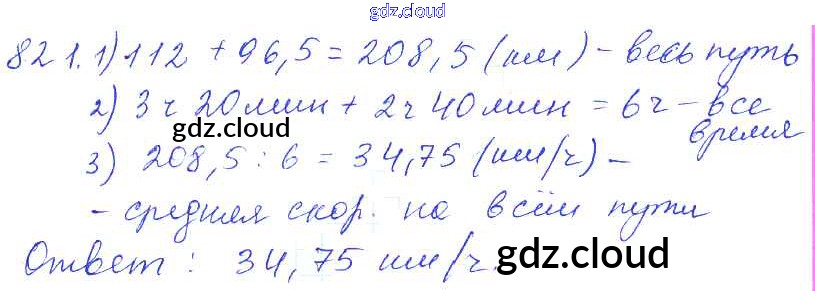 gdz.cloud
821. 1) 112 + 96,5 = 208,5 (км) - весь путь
2) 3 ч 20 мин + 2 ч 40 мин = 6 ч - все
время
gdz.cloud
3) 208,5 : 6 = 34,75 (км/ч) -
- средняя скор. на всём пути
Ответ : 34,75 км/ч.
gdz.cloud